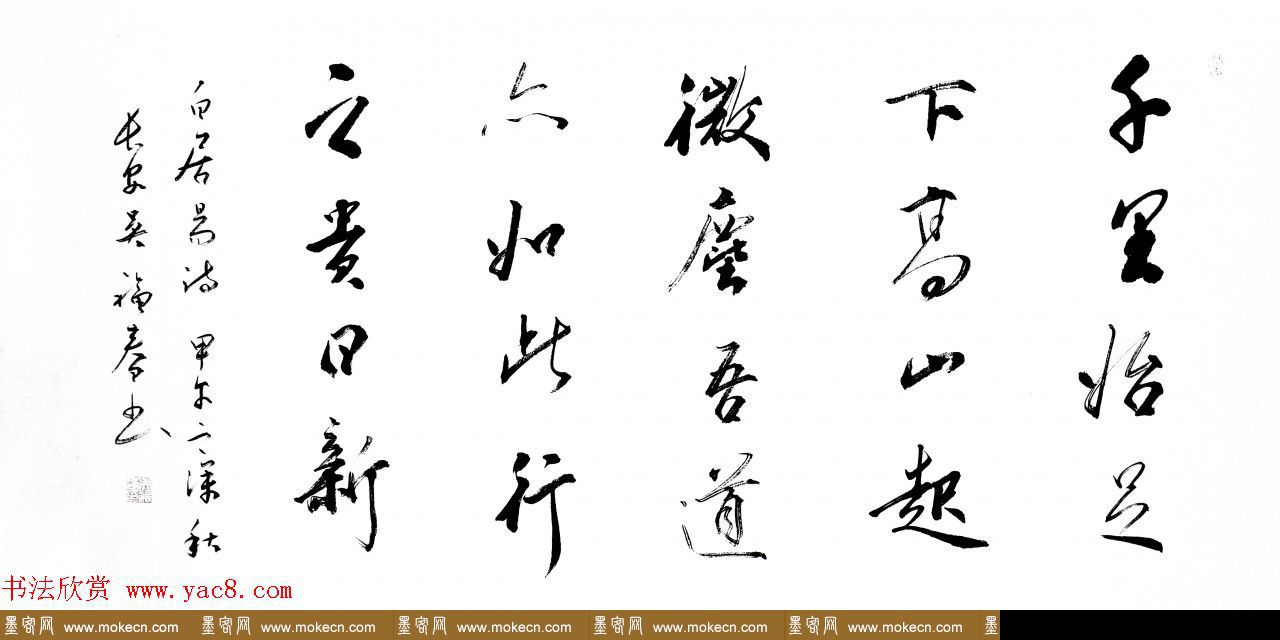 千里始足
下高山起
微塵吾道
亦如此行
之貴日新
白居易詩 甲午之深秋
長安吴福春书
书法欣赏 www.yac8.com
墨客网 www.mokecn.com 墨客网 www.mokecn.com 墨客网 www.mokecn.com 墨客网 www.mokecn.com 墨客网